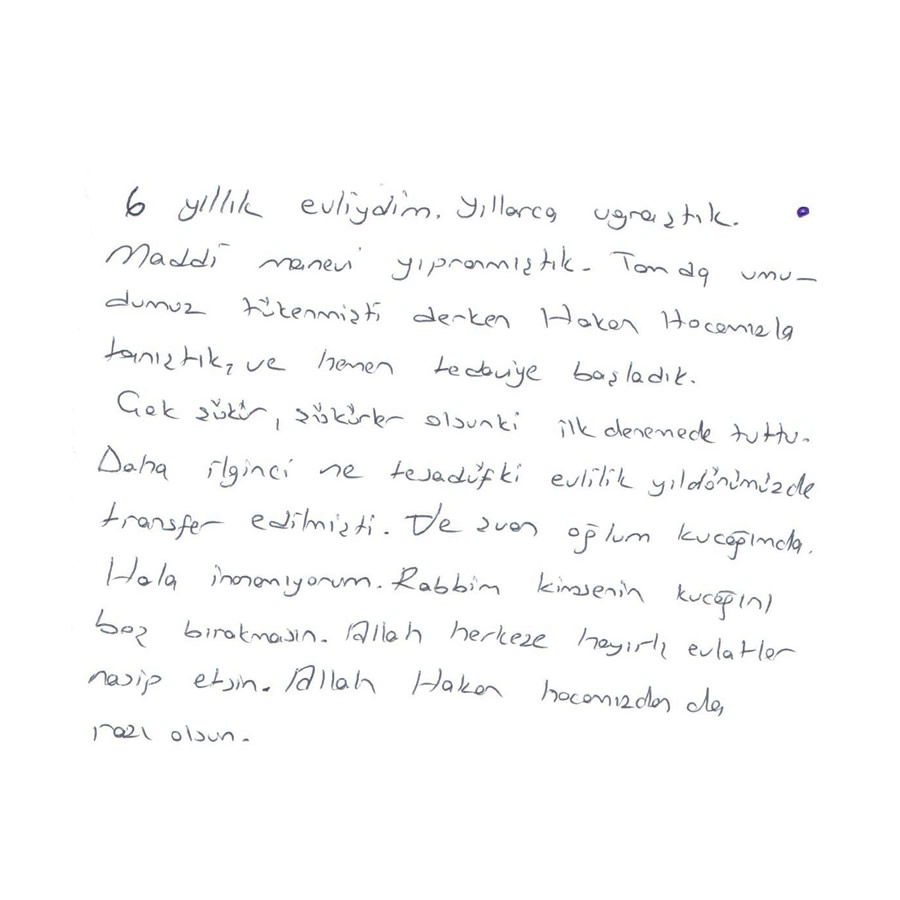 6 yıllık evliydim. Yıllarca uğraştık.
Maddi manevi yıpranmıştık. Tam da umu-
dumuz tükenmişti derken Hakan Hocamızla
tanıştık, ve hemen tedaviye başladık.
Çok şükür, şükürler olsunki ilk denemede tuttu.
Daha ilginci ne tesadüfki evlilik yıldönümüzde
transfer edilmişti. Ve şuan oğlum kucağımda.
Hala inanamıyorum. Rabbim kimsenin kucağını
boş bırakmasın. Allah herkeze hayırlı evlatlar
nasip etsin. Allah Hakan hocamızdan da
razı olsun.